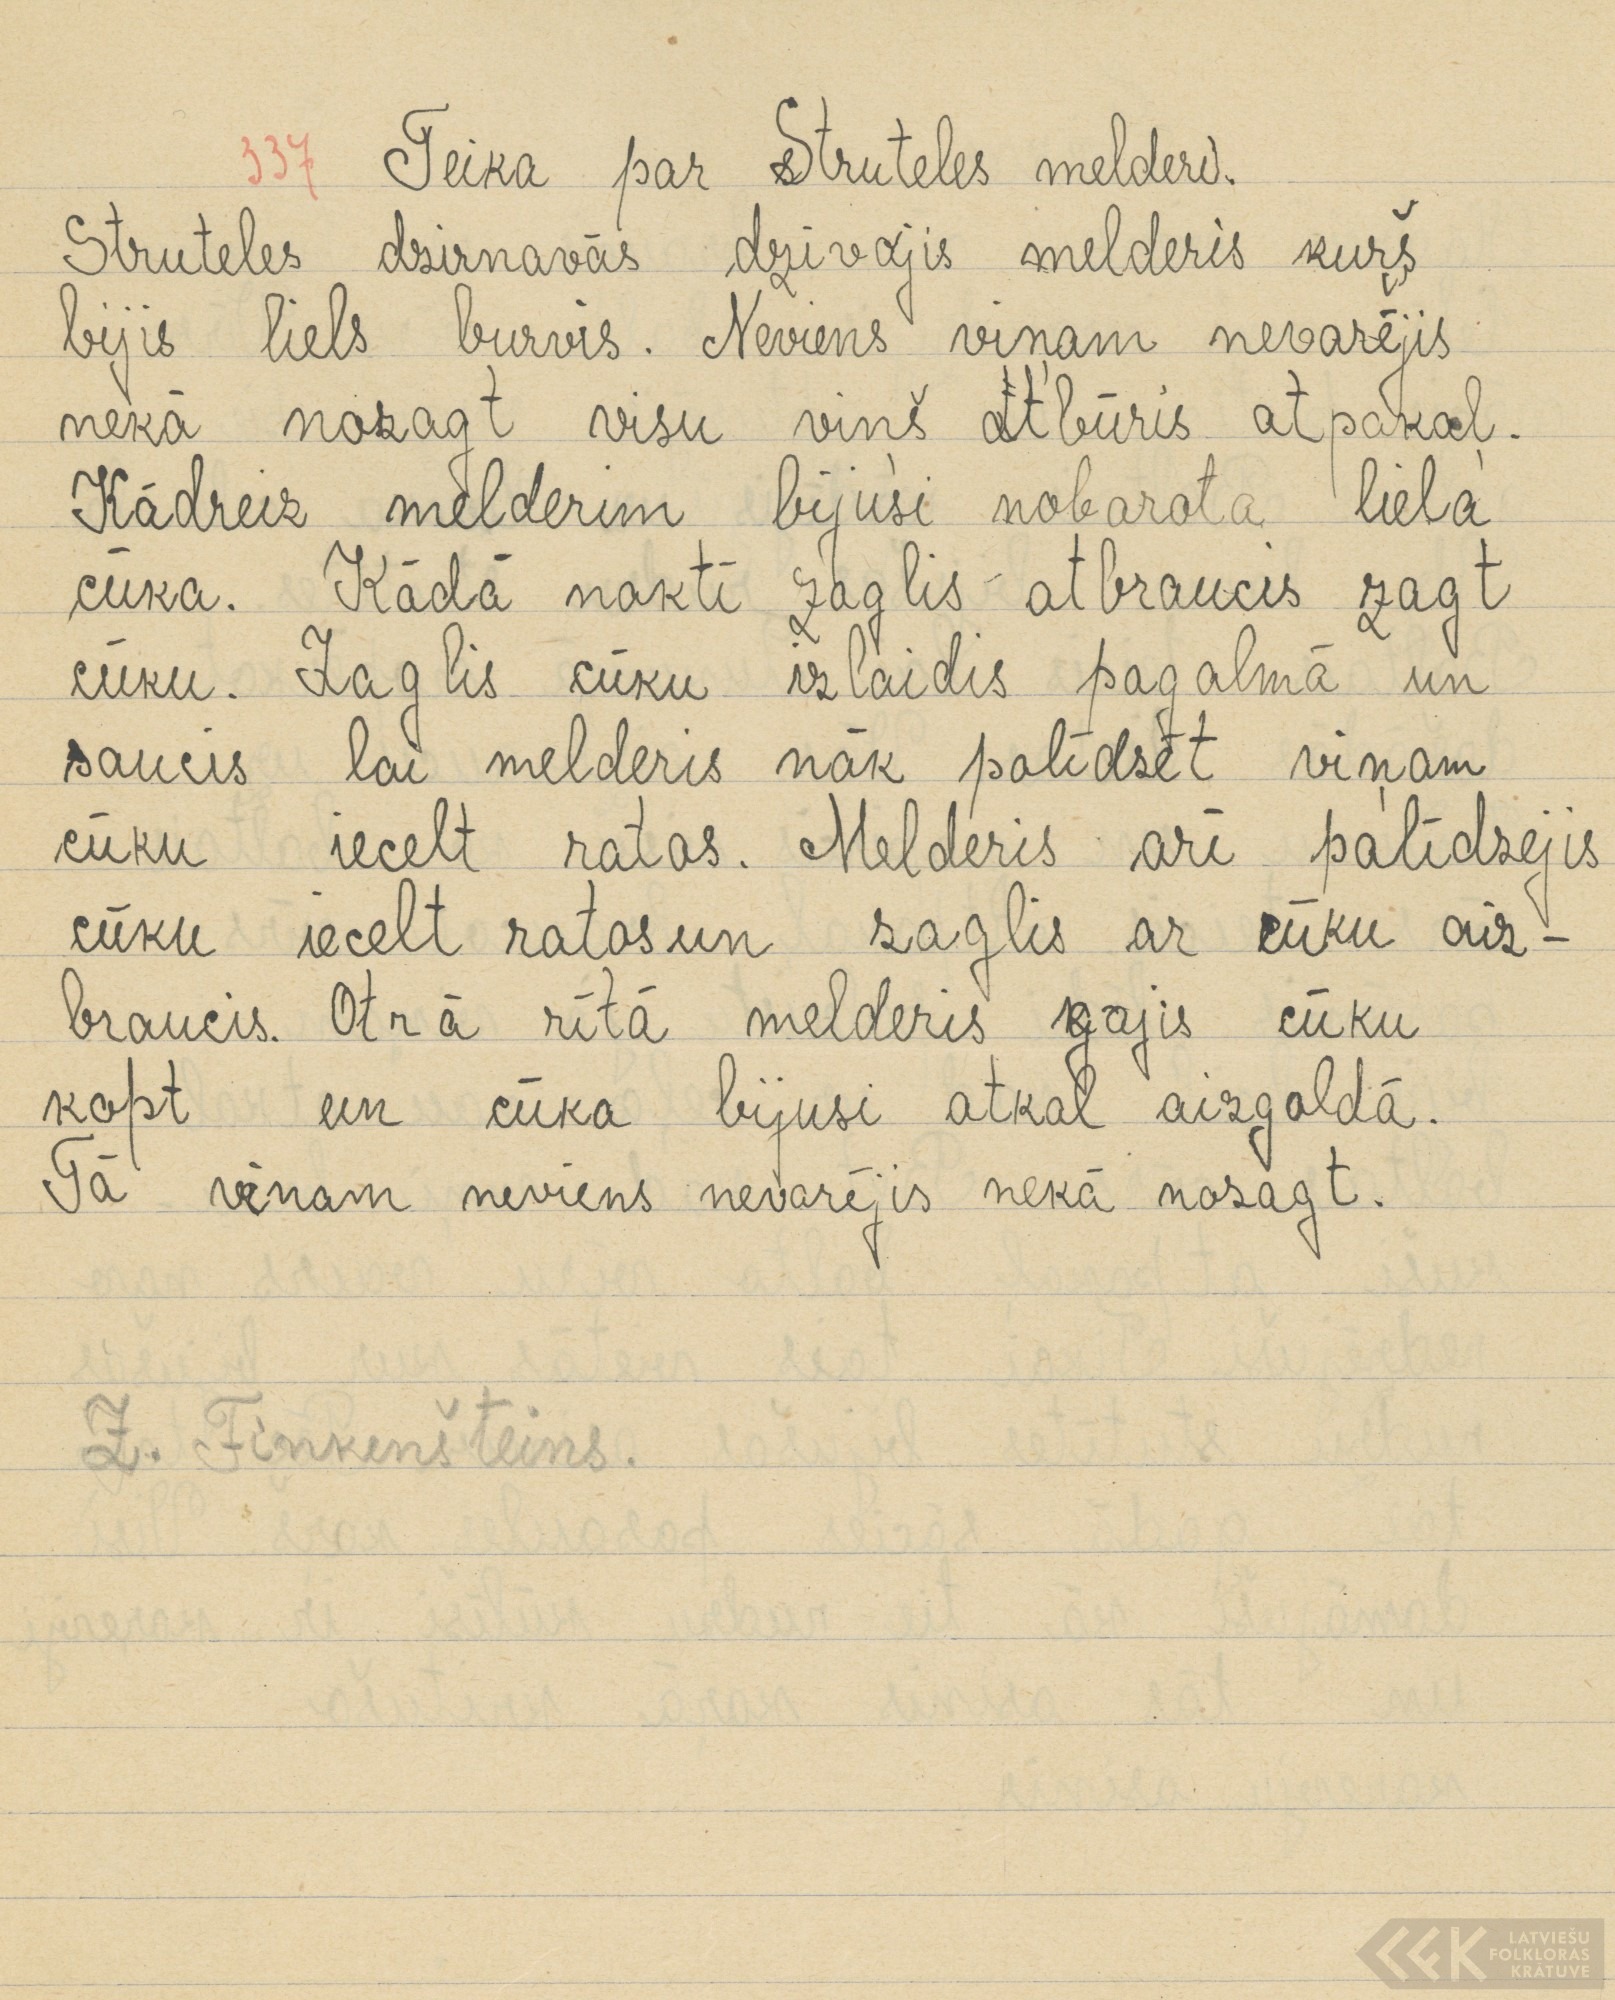 337 Teika par Struteles melderi.
Struteles dzirnavās dzīvojis melderis kurš
bijis liels burvis. Neviens viņam nevarējis
nekā nozagt visu viņš atbūris atpakaļ.
Kādreiz melderim bijusi nobarota liela
cūka. Kādā naktī zaglis atbraucis zagt
cūku. Zaglis cūku izlaidis pagalmā un
saucis lai melderis nāk palīdzēt viņam
cūku iecelt ratos. Melderis arī palīdzejis
cūku iecelt ratos un zaglis ar cūku aiz-
braucis. Otrā rītā melderis gajis cūku
kopt un cūka bijusi atkal aizgaldā.
Tā viņam neviens nevarējis nekā nozagt.
Z. Finkenšteins.
LATVIEŠU
FOLKLORAS
KRĀTUVE